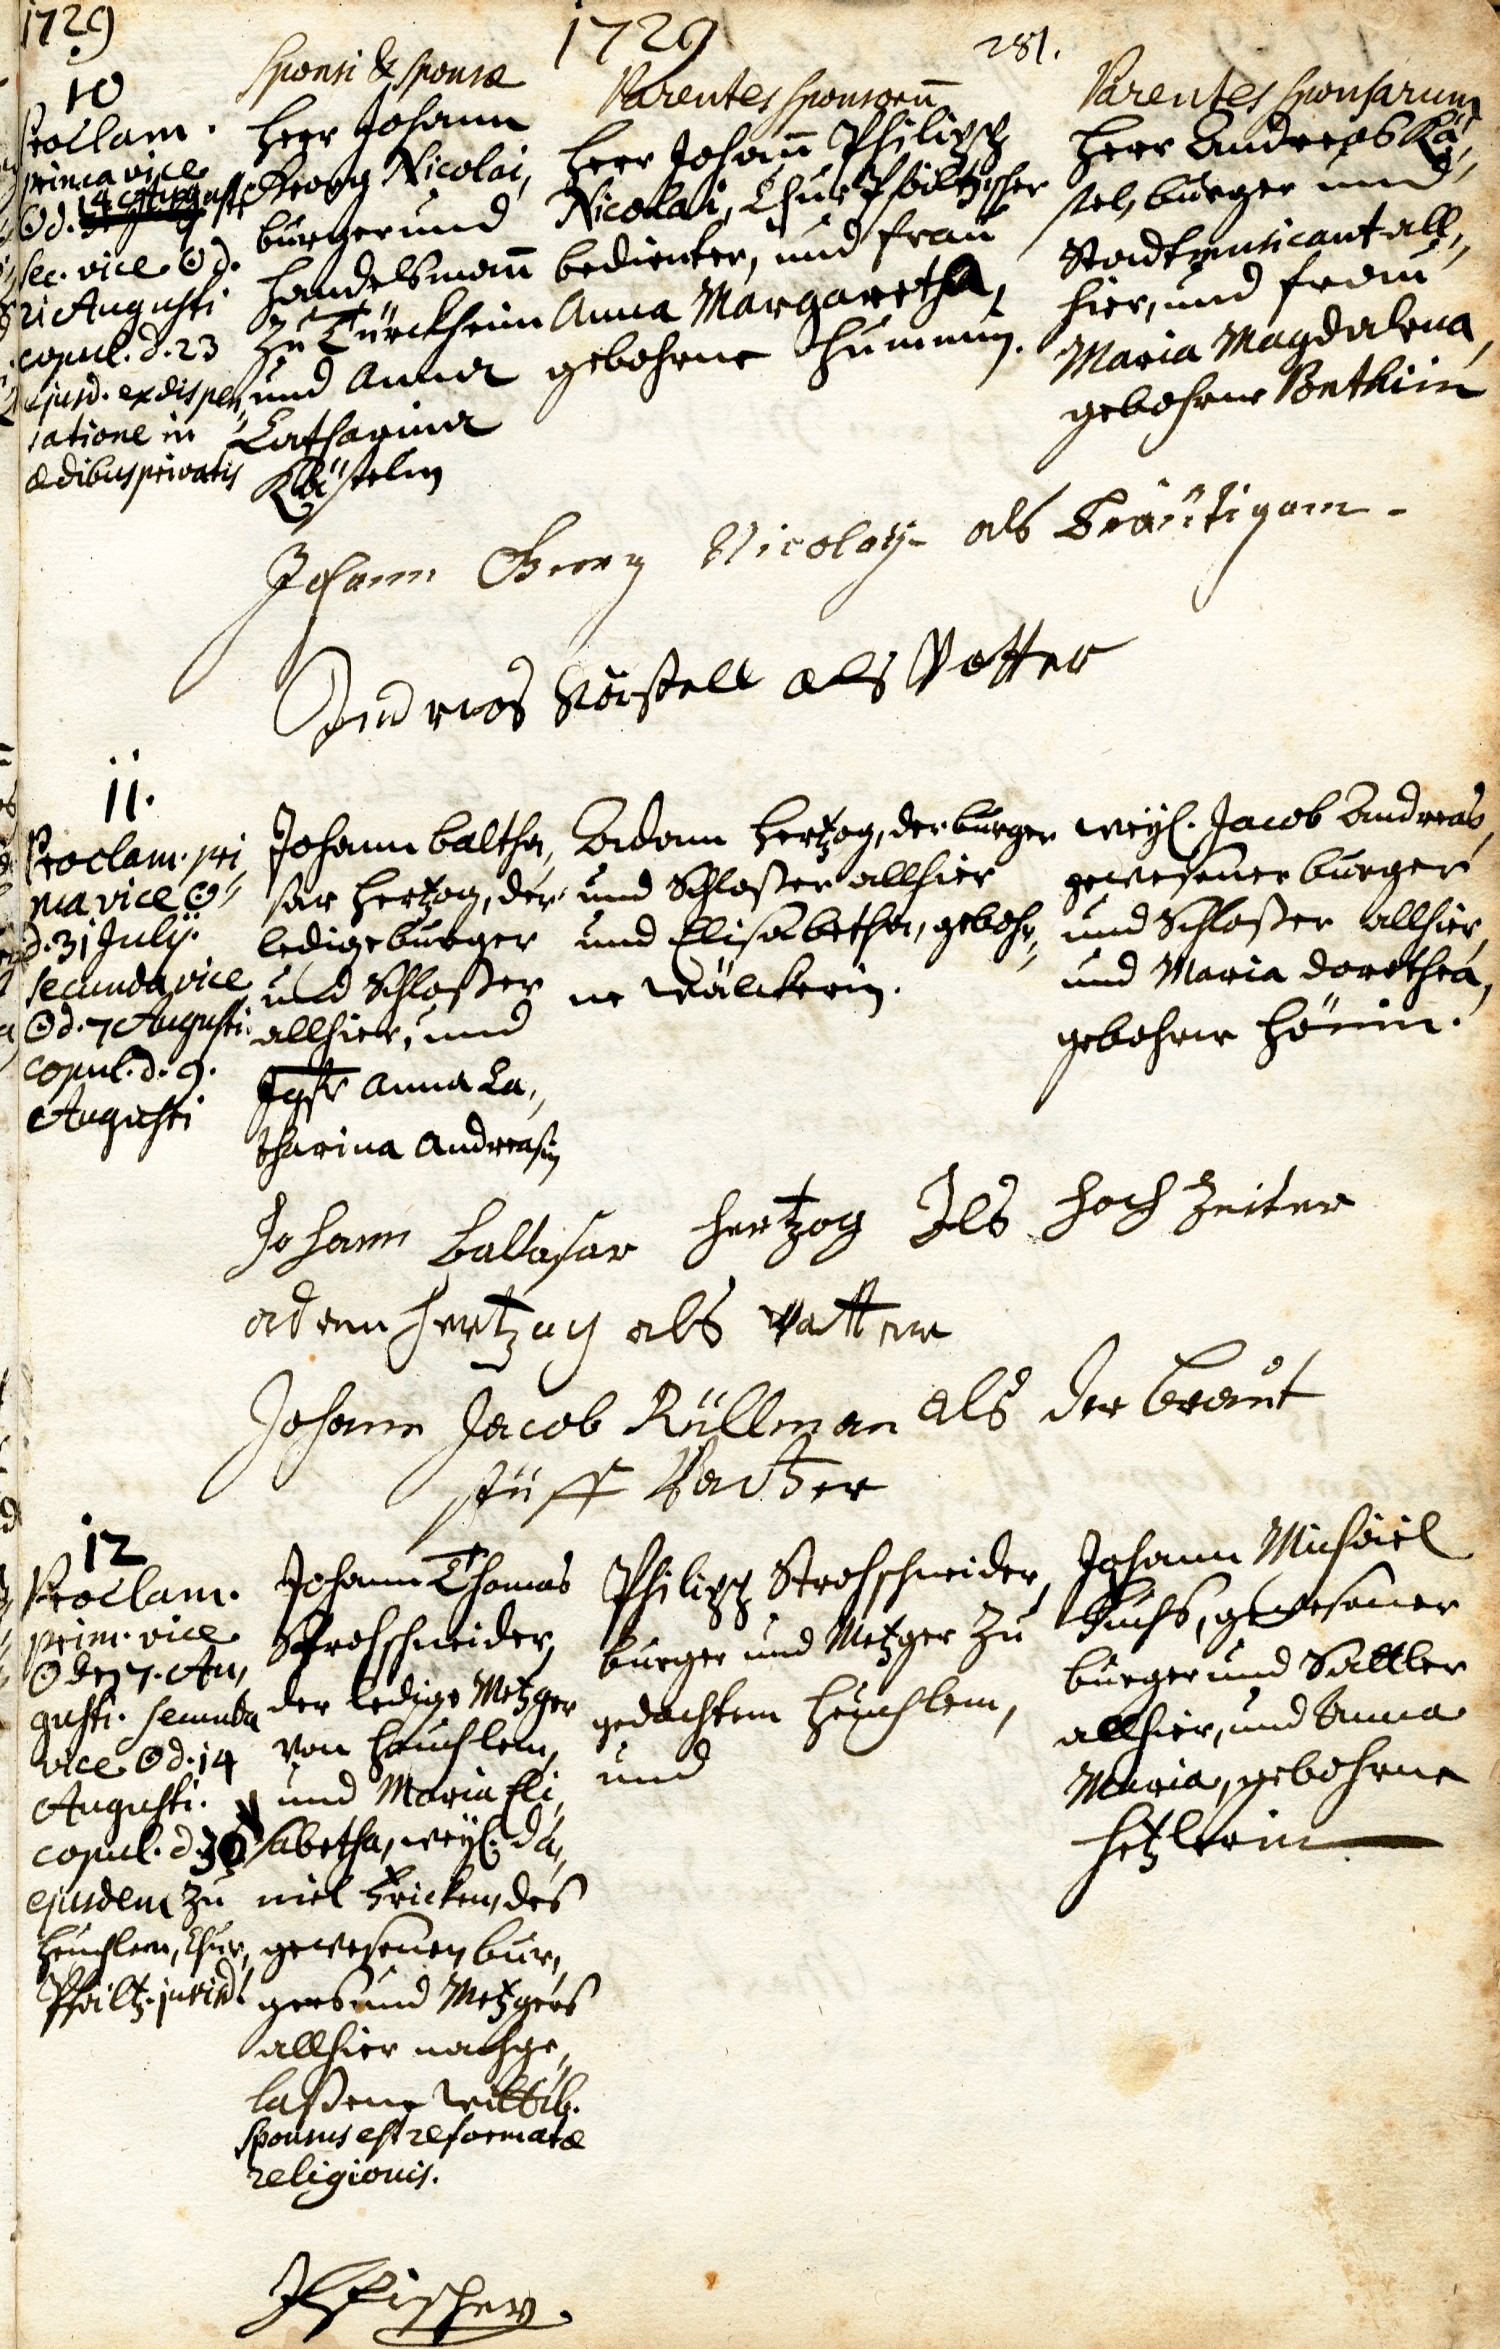 1729
1729
281.
10
Proclam.
prima vice
☉ d. 14 Augusti
sec. vice ☉ d.
21 Augusti
copul. d. 23
ejusd. ex dispen,,
satione in
ædibus privatis
Sponsi & Sponsæ
Herr Johann
Georg Nicolai,
burger und
Handelsmañ
zu Türckheim
und Anna
Catharina
Kästelin
Parentes Sponsorũ
Herr Johañ Philipp
Nicolai, ChurPfältzischer
bedienter, und Frau
Anna Margaretha,
gebohrne Hummin.
Parentes Sponsarum
Herr Andreas Kä,,
stel, burger und
Stadtmusicant all,,
hier, und Frau
Maria Magdalena,
gebohrne Bonthin
Johann Georg Nicolay als Bräutigam
Andreas Kästell als Vatter
11.
Proclam. pri
ma vice ☉
d. 31 July.
secunda vice
☉ d. 7 Augusti
copul. d. 9.
Augusti
Johann Baltha,,
sar Hertzog, der
ledige burger
und Schloßer
allhier, und
Jgfr Anna Ca,,
tharina Andreasin
Adam Hertzog, der burger
und Schloßer allhier
und Elisabetha, gebohr,,
ne Wälckerin.
weyl. Jacob Andreas,
gewesener burger
und Schloßer allhier,
und Maria Dorothea,
gebohrne Hönin.
Johann Baltasar Hertzog Als Hoch Zeiter
adam Hertzog als Vatter
Johann Jacob Rüllman als der Braut
stüff Vatter
12
Proclam.
prim. vice
☉ d. 7. Au,,
gusti. secunda
vice ☉ d. 14
Augusti.
copul. d. 30
ejusdem zu
Heuchlem, Chur,,
Pfältz. jurisd.
Johann Thomas
Strohschneider,
der ledige Metzger
von Heuchlem,
und Maria Eli,,
sabetha, weyl. Da,,
niel Fricken, des
gewesenen bur,,
gers und Metzgers
allhier nachge,,
laßene Wittib.
Sponsus est reformatæ
religionis.
Philipp Strohschneider,
burger und Metzger zu
gedachtem Heuchlem,
und
Johann Michael
Fuchs, gewesener
burger und Sattler
allhier, und Anna
Maria, gebohrne
Hetzlerin
Fischer.